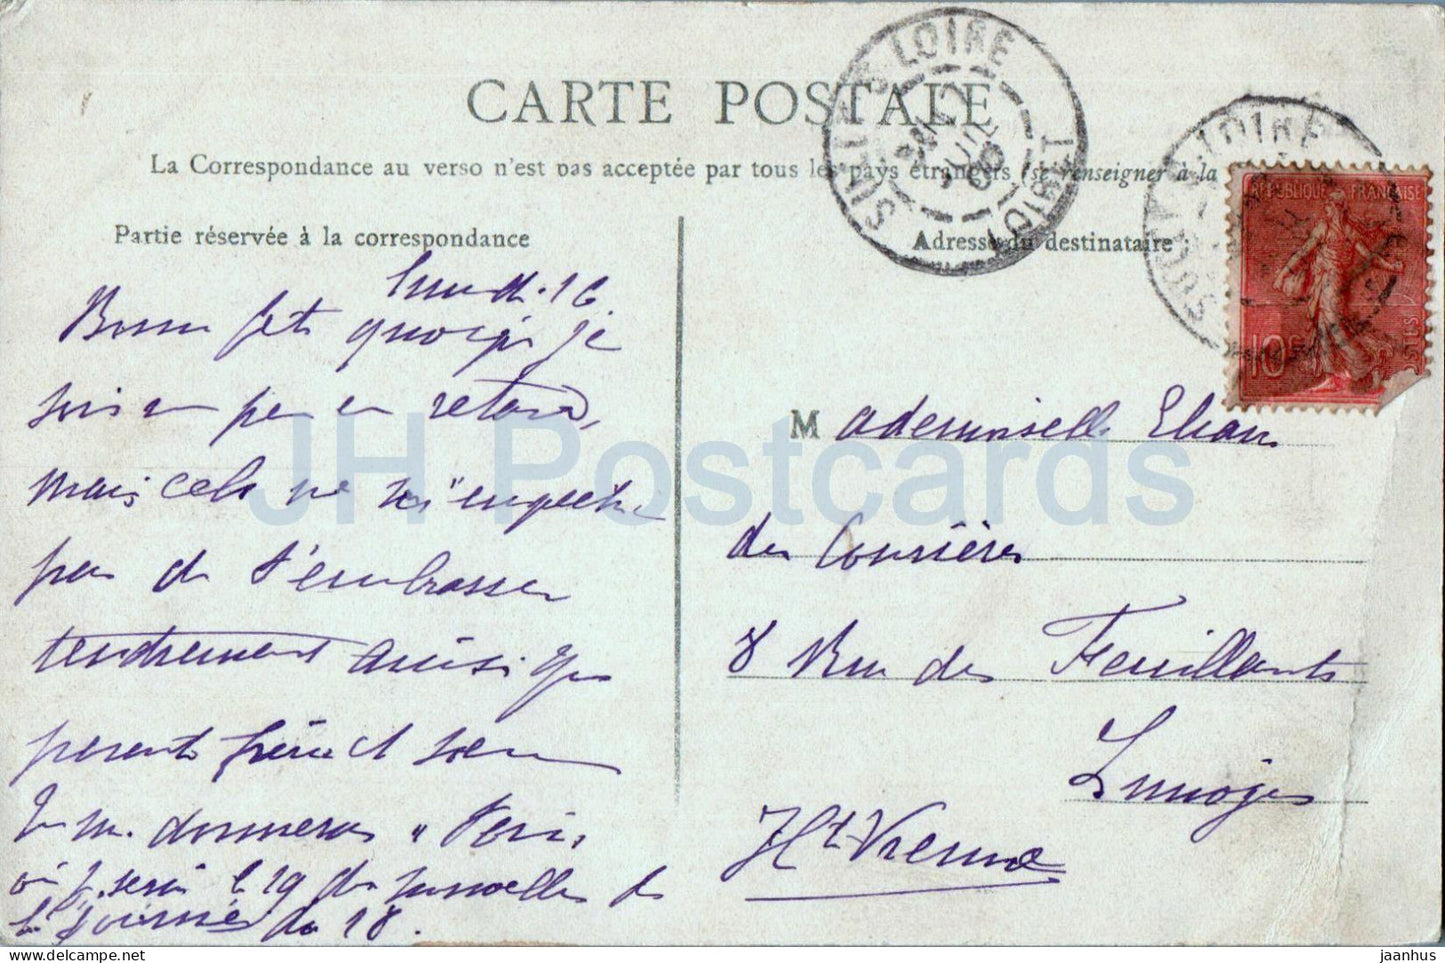 CARTE POSTALE
La Correspondance au verso n'est pas acceptée par tous les pays étrangers (se renseigner à la
Partie réservée à la correspondance
Adresse du destinataire :
SULLY-S-LOIRE
LOIRET
REPUBLIQUE FRANÇAISE
10c
POSTES
Lundi 16
Bonne fête quoiqu je
suis un peu en retard,
mais cela ne m'empêche
pas de t'embrasser
tendrement ainsi que
parents frère et soeur
Tu m. donneras à Paris,
où j. serai le 19 des nouvelles de
la journée du 18.
Mademoiselle Eliane
des Courières
8 Rue des Feuillants
Limoges
Hte Vienne
JH Postcards
jaanhus
jaanhus.com